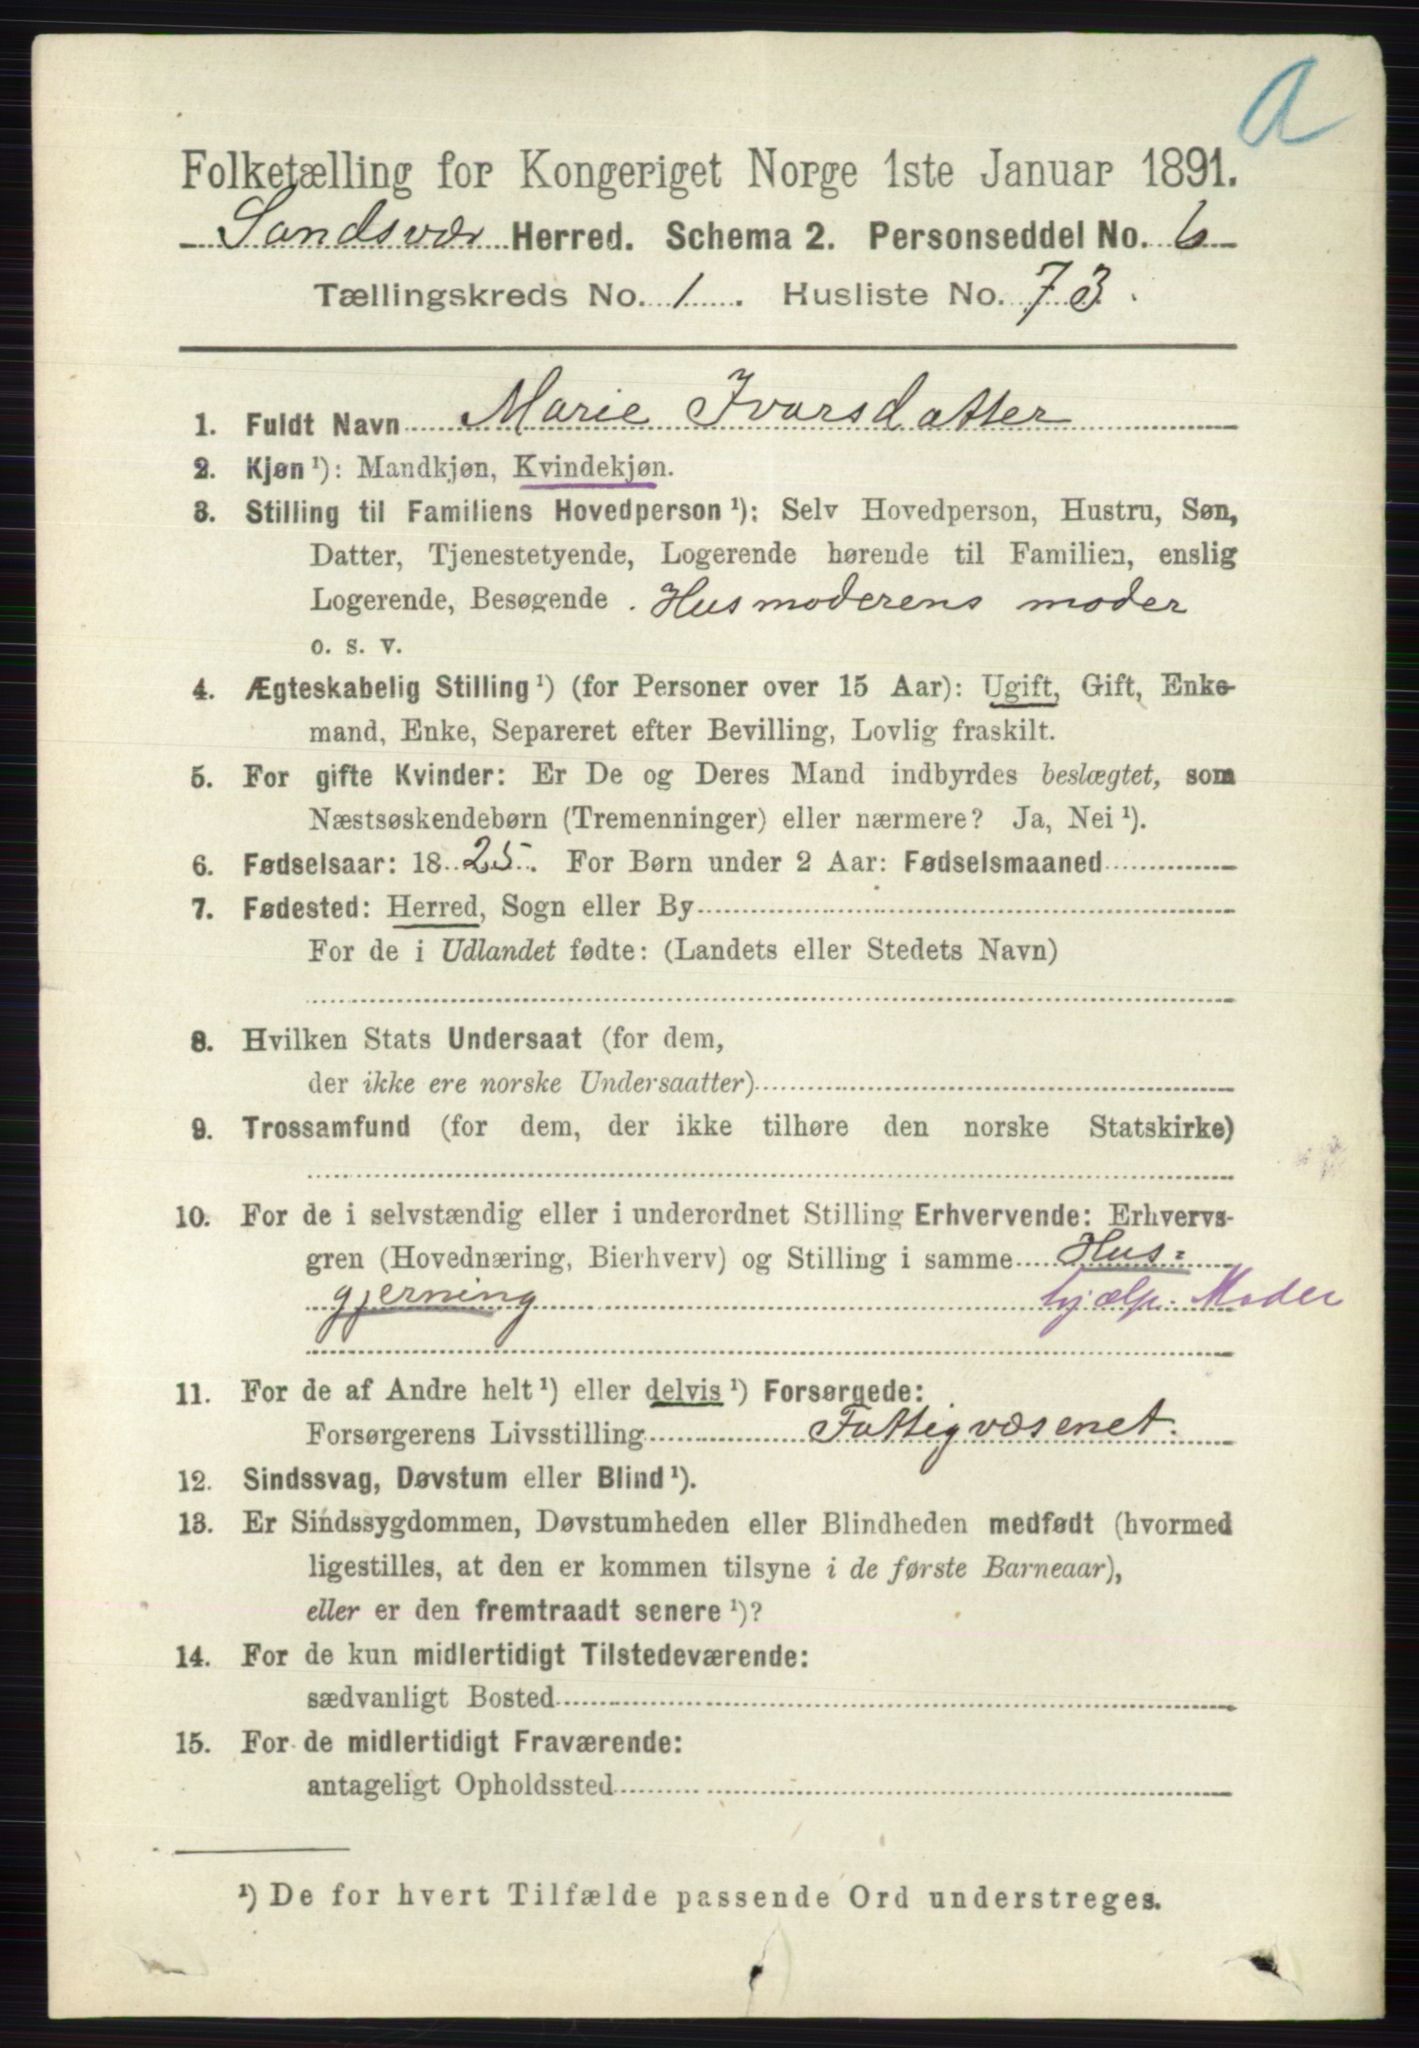 A
Folketælling for Kongeriget Norge 1ste Januar 1891.
Sandsvær Herred. Schema 2. Personseddel No. 6
Tællingskreds No. 1. Husliste No. 73.
1. Fuldt Navn Marie Ivarsdatter
2. Kjøn ¹): Mandkjøn, Kvindekjøn.
3. Stilling til Familiens Hovedperson ¹): Selv Hovedperson, Hustru, Søn,
Datter, Tjenestetyende, Logerende hørende til Familien, enslig
Logerende, Besøgende . Husmoderens moder
o. s. v.
4. Ægteskabelig Stilling ¹) (for Personer over 15 Aar): Ugift, Gift, Enke-
mand, Enke, Separeret efter Bevilling, Lovlig fraskilt.
5. For gifte Kvinder: Er De og Deres Mand indbyrdes beslægtet, som
Næstsøskendebørn (Tremenninger) eller nærmere? Ja, Nei ¹).
6. Fødselsaar: 1825. For Børn under 2 Aar: Fødselsmaaned
7. Fødested: Herred, Sogn eller By
For de i Udlandet fødte: (Landets eller Stedets Navn)
8. Hvilken Stats Undersaat (for dem,
der ikke ere norske Undersaatter)
9. Trossamfund (for dem, der ikke tilhøre den norske Statskirke)
10. For de i selvstændig eller i underordnet Stilling Erhvervende: Erhvervs-
gren (Hovednæring, Bierhverv) og Stilling i samme Hus=
gjerning hjælp. Moder
11. For de af Andre helt ¹) eller delvis ¹) Forsørgede:
Forsørgerens Livsstilling Fattigvæsenet.
12. Sindssvag, Døvstum eller Blind ¹).
13. Er Sindssygdommen, Døvstumheden eller Blindheden medfødt (hvormed
ligestilles, at den er kommen tilsyne i de første Barneaar),
eller er den fremtraadt senere ¹)?
14. For de kun midlertidigt Tilstedeværende:
sædvanligt Bosted
15. For de midlertidigt Fraværende:
antageligt Opholdssted
¹) De for hvert Tilfælde passende Ord understreges.